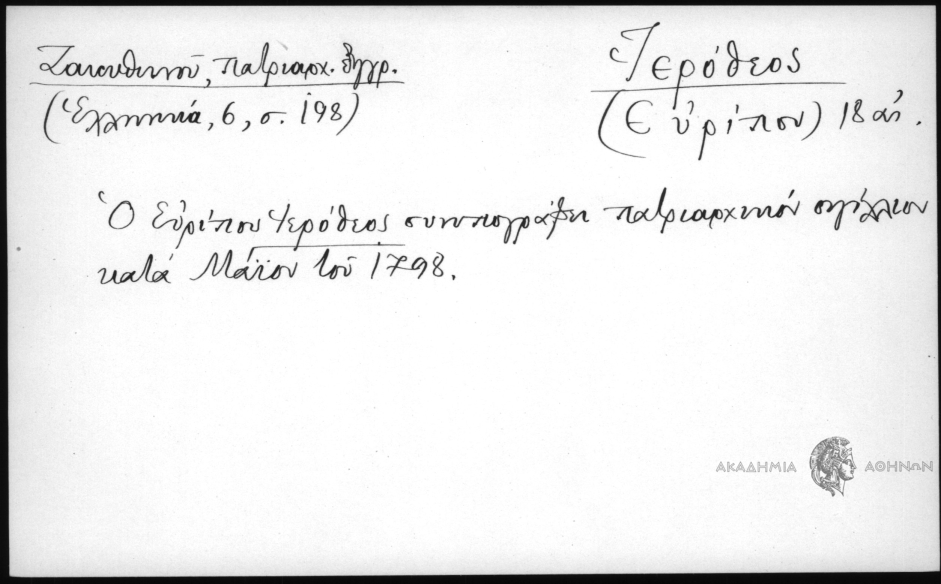 Ζακυθηνοῦ, πατριαρχ. ἔγγρ.
(Ἑλληνικά, 6, σ. 198)
Ἱερόθεος
(Εὐρίπου) 18 αἰ.
Ὁ Εὐρίπου Ἱερόθεος συνυπογράφει πατριαρχικόν σιγίλλιον
κατά Μάϊον τοῦ 1798.
ΑΚΑΔΗΜΙΑ ΑΘΗΝΩΝ